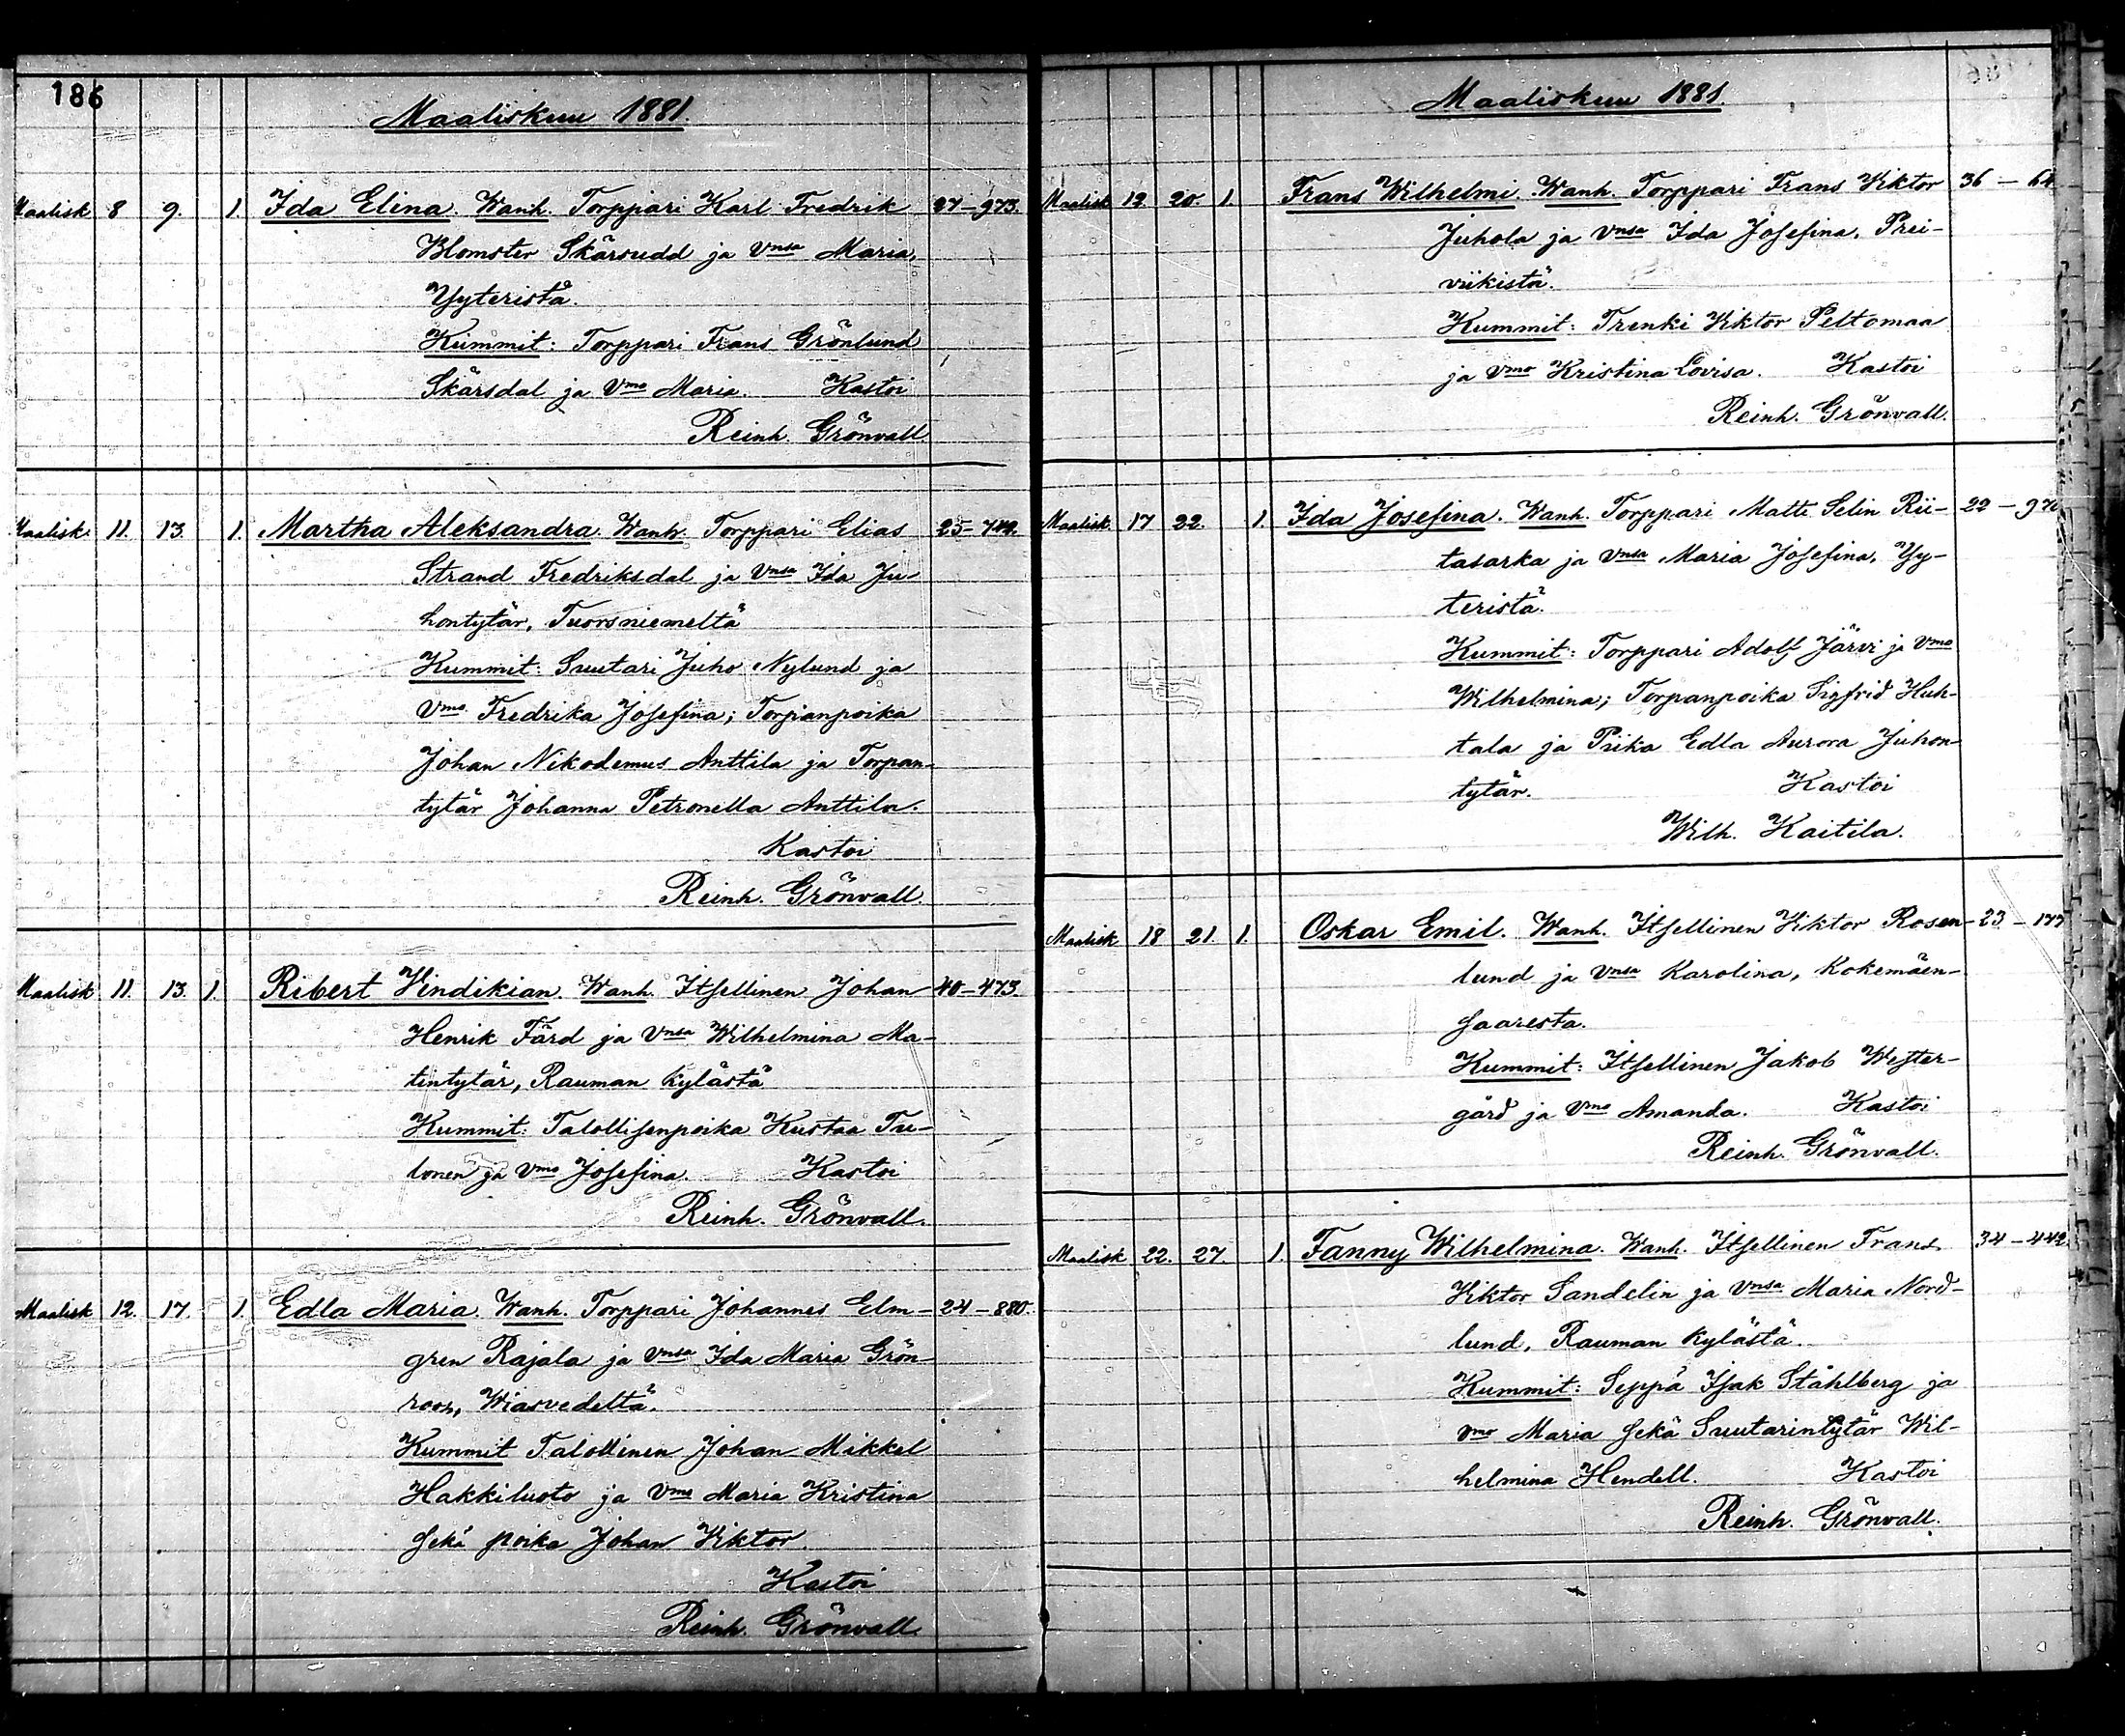 186
Maaliskuu 1881.
Maalisk 8 9. 1. Ida Elina. Wanh. Torppari Karl Fredrik 27-973.
Blomster Skärsudd ja Vnsa Maria,
Yyteristä.
Kummit: Torppari Frans Grönlund
Skärsdal ja Vmo Maria. Kastoi
Reinh. Grönvall
Maalisk. 11. 13. 1. Martha Aleksandra. Wanh. Torppari Elias 25-742.
Strand Fredriksdal ja Vnsa Ida Ju-
hontytär, Tuorsniemeltä
Kummit: Suutari Juho Nylund ja
Vmo Fredrika Josefina; Torpanpoika
Johan Nikodemus Anttila ja Torpan-
tytär Johanna Petronella Anttila.
Kastoi
Reinh. Grönvall.
Maalisk 11. 13. 1. Ribert Vindikian. Wanh. Itsellinen Johan 40-473.
Henrik Färd ja Vnsa Wilhelmina Ma-
tintytär, Rauman kylästä
Kummit: Talollisenpoika Kustaa Tu-
lonen ja Vmo Josefina. Kastoi
Reinh. Grönvall.
Maalisk 12. 17. 1. Edla Maria. Wanh. Torppari Johannes Elm- 24-880.
gren Rajala ja Vnsa Ida Maria Grön-
roos, Wiasvedeltä.
Kummit Talollinen Johan Mikkel
Hakkiluoto ja Vmo Maria Kristina
sekä poika Johan Viktor.
Kastoi
Reinh. Grönvall.
Maaliskuu 1881.
Maalisk 12. 20. 1. Frans Wilhelmi. Wanh. Torppari Frans Viktor 36-64
Juhola ja Vnsa Ida Josefina, Prei-
viikistä.
Kummit: Trenki Viktor Peltomaa
ja Vmo Kristina Lovisa. Kastoi
Reinh. Grönvall.
Maalisk 17 22. 1. Ida Josefina. Wanh. Torppari Matti Selin Rii- 22-
tasarka ja Vnsa Maria Josefina, Yy-
teristä.
Kummit: Torppari Adolf Järvi ja Vmo
Wilhelmina; Torpanpoika Sigfrid Huh-
tala ja Piika Edla Aurora Juhon-
tytär. Kastoi
Wilh. Kaitila.
Maalisk 18 21. 1. Oskar Emil. Wanh. Itsellinen Viktor Rosen- 23-177
lund ja Vnsa Karolina, Kokemäen-
saaresta.
Kummit: Itsellinen Jakob Wester-
gård ja Vmo Amanda. Kastoi
Reinh. Grönvall.
Maalisk 22. 27. 1. Fanny Wilhelmina. Wanh. Itsellinen Frans 34-442
Viktor Sandelin ja Vnsa Maria Nord-
lund, Rauman kylästä.
Kummit: Seppä Isak Ståhlberg ja
Vmo Maria sekä Suutarintytär Wil-
helmina Hendell. Kastoi
Reinh. Grönvall.